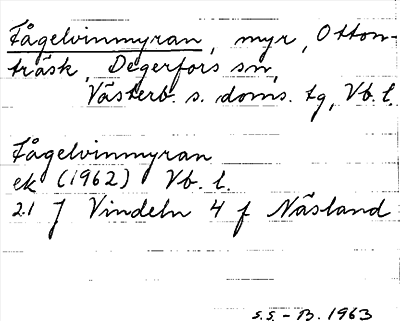 Fågelvinmyran, myr, Otton-
träsk, Degerfors sn,
Västerb. s. doms. tg, Vb. l.
Fågelvinmyran
ek (1962) Vb. l.
21 J Vindeln 4 f Näsland
S.S. - B. 1963